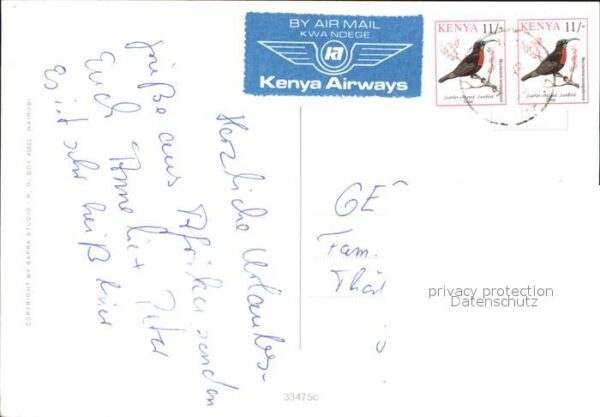 BY AIR MAIL
KWA NDEGE
Kenya Airways
KENYA 11/-
Scarlet-chested Sunbird
KENYA 11/-
Scarlet-chested Sunbird
Herzliche Urlaubs-
grüße aus Afrika senden
Euch Annelie + Peter
Es ist sehr heiß hier
GE
Fam.
privacy protection
Datenschutz
COPYRIGHT BY SAPRA STUDIO - P. O. BOX 45802 NAIROBI
33475c